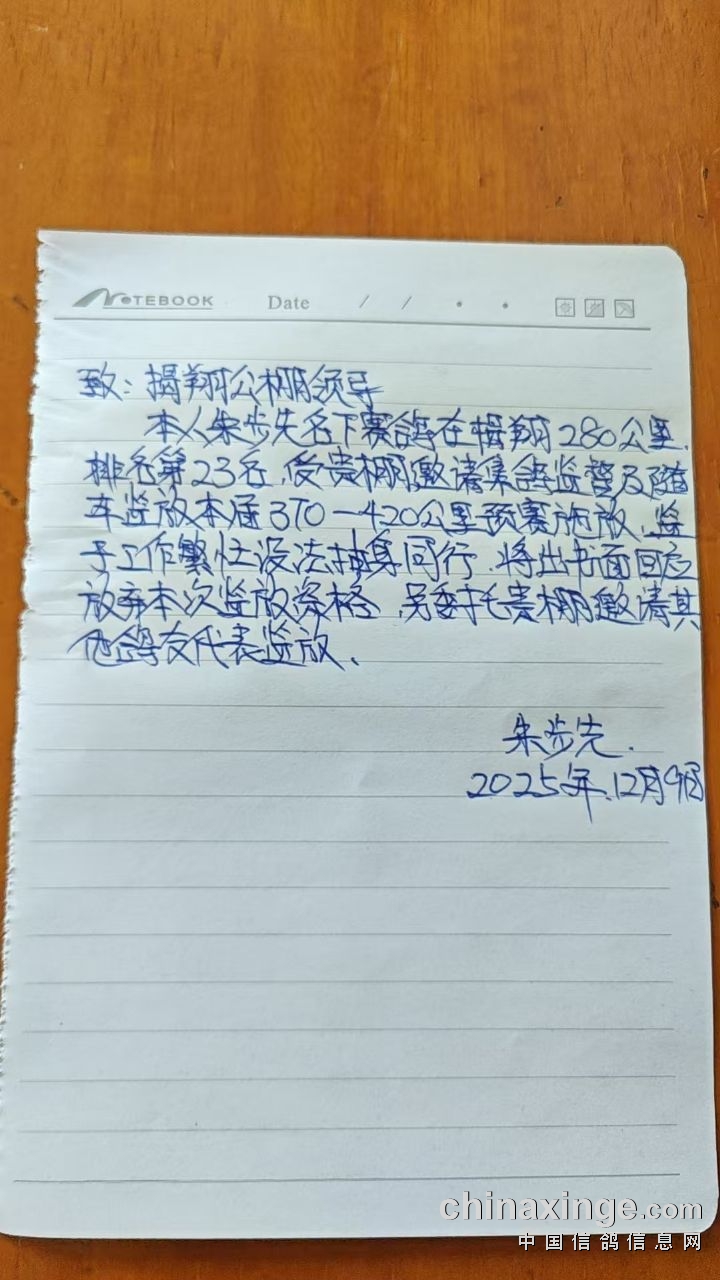 NOTEBOOK Date / / • •
致：揭翔公棚领导
本人朱步先名下赛鸽在揭翔280公里.
排名第23名,受贵棚邀请集鸽监督及随
车监放本届370一420公里预赛施放.鉴
于工作繁忙没法抽身同行,将出书面回应
放弃本次监放资格,另委托贵棚邀请其
他鸽友代表监放、
朱步先.
2025年.12月9日
chinaxinge.com
中国信鸽信息网